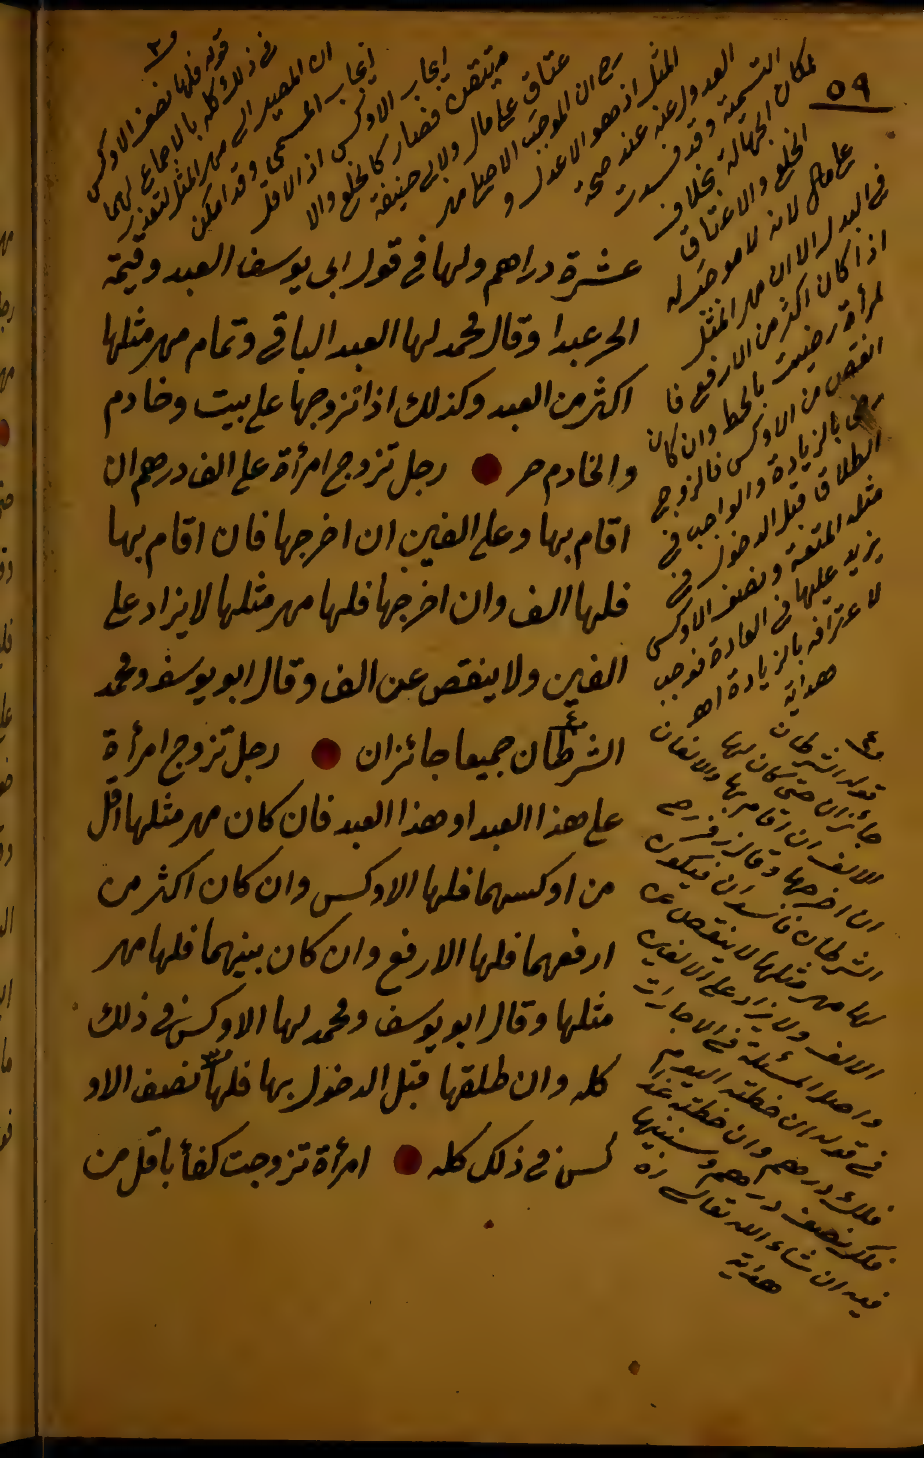 ٥٩
عشرة دراهم ولها في قول ابي يوسف العبد وقيمة
الحر عبدا وقال محمد لها العبد الباقي وتمام مهر مثلها
اكثر من العبد وكذلك اذا تزوجها على بيت وخادم
والخادم حر رجل تزوج امرأة على الف درهم ان
اقام بها وعلى الفين ان اخرجها فان اقام بها
فلها الف وان اخرجها فلها مهر مثلها لا يزاد على
الفين ولا ينقص عن الف وقال ابو يوسف ومحمد
الشرطان جميعا جائزان رجل تزوج امرأة
على هذا العبد او هذا العبد فان كان مهر مثلها اقل
من اوكسهما فلها الاوكس وان كان اكثر من
ارفعهما فلها الارفع وان كان بينهما فلها مهر
مثلها وقال ابو يوسف ومحمد لها الاوكس في ذلك
كله وان طلقها قبل الدخول بها فلها نصف الاو
كس في ذلك كله امرأة تزوجت كفأ باقل من
قوله فلها نصف الاوكس
في ذلك كله بالاجماع لهما
ان المصير الى مهر المثل لتعذر
ايجاب المسمى وقد امكن
ايجاب الاوكس اذ الاقل
متيقن فصار كالخلع والا
عتاق على مال ولابي حنيفة
رح ان الموجب الاصلي مهر
المثل اذ هو الاعدل و
العدول عنه عند صحة
التسمية وقد فسدت
لمكان الجهالة بخلاف
الخلع والاعتاق
على مال لانه لا موجب له
في البدل الا ان مهر المثل
اذا كان اكثر من الارفع فا
لمرأة رضيت بالحط وان كان
انقص من الاوكس فالزوج
رضي بالزيادة والواجب في
الطلاق قبل الدخول في
مثله المتعة ونصف الاوكس
يزيد عليها في العادة فوجب
لاعترافه بالزيادة اهـ
هداية
قوله الشرطان
جائزان حتى كان لها
الالف ان اقام بها والالفان
ان اخرجها وقال زفر رح
الشرطان فاسدان فيكون
لها مهر مثلها لا ينقص عن
الالف ولا يزاد على الالفين
واصل المسئلة في الاجارات
في قوله ان خطته اليوم
فلك درهم وان خطته غدا
فلك نصف درهم وسنبينها
فيه ان شاء الله تعالى
هداية